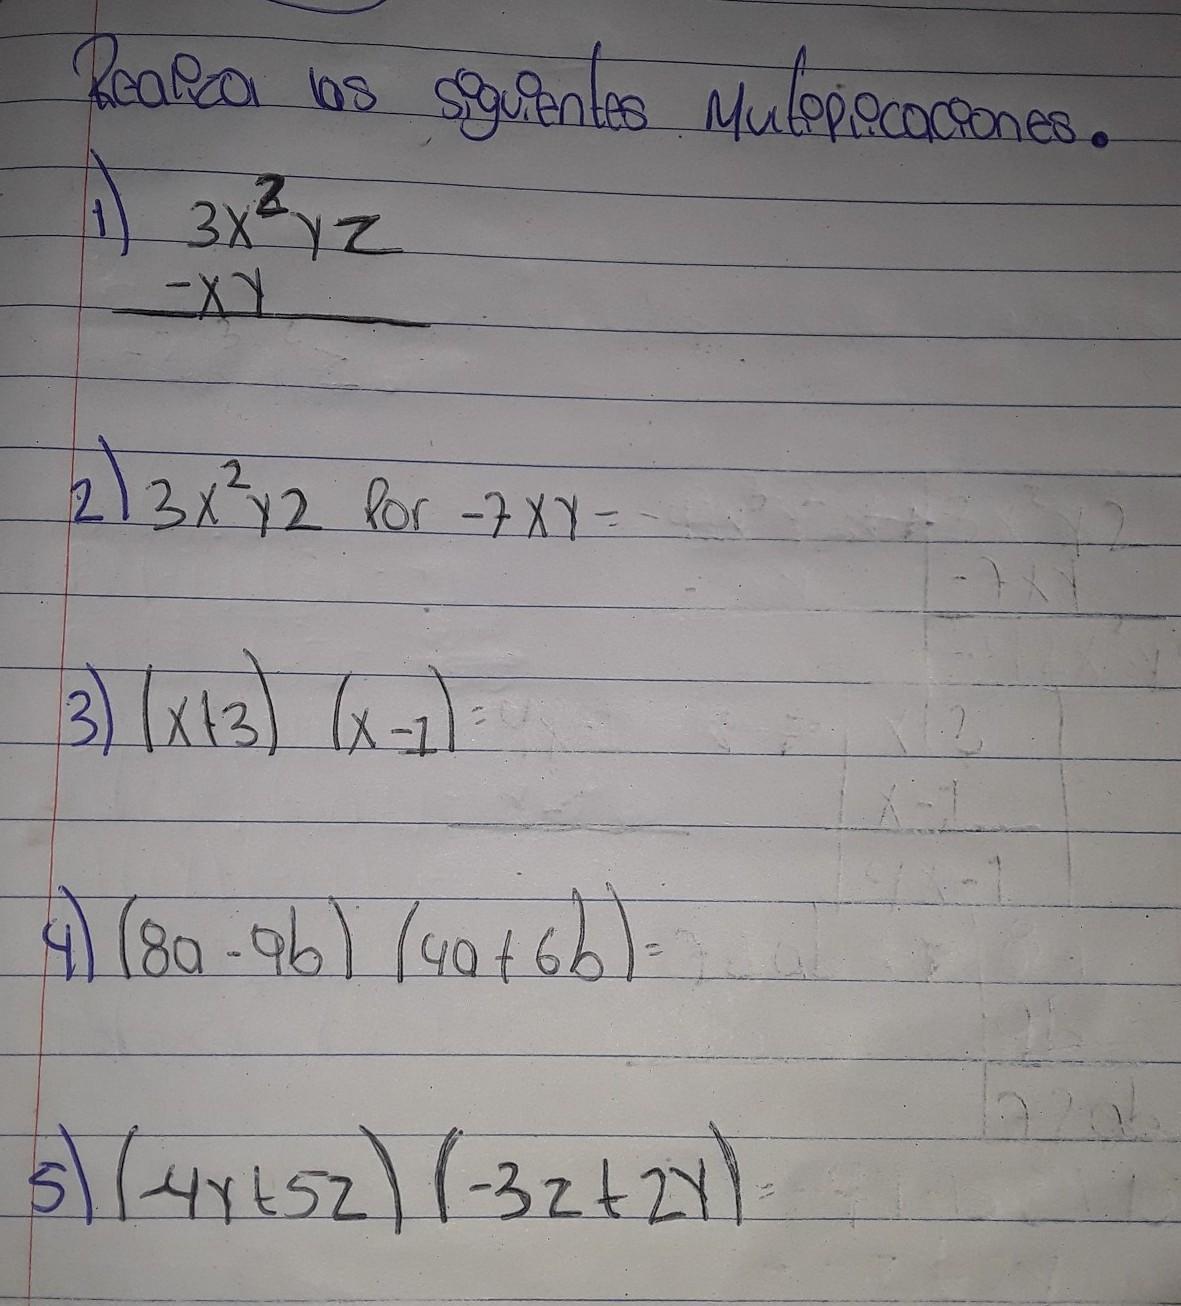 Realiza las siguientes Mutipicaciones.
1) 3x²yz
-xy
2) 3x²y2 Por -7xy=
-7xy
3) (x+3) (x-1)=
x-1
4) (8a-9b) (4a+6b)=
5) (-4y+5z) (-3z+2y)=